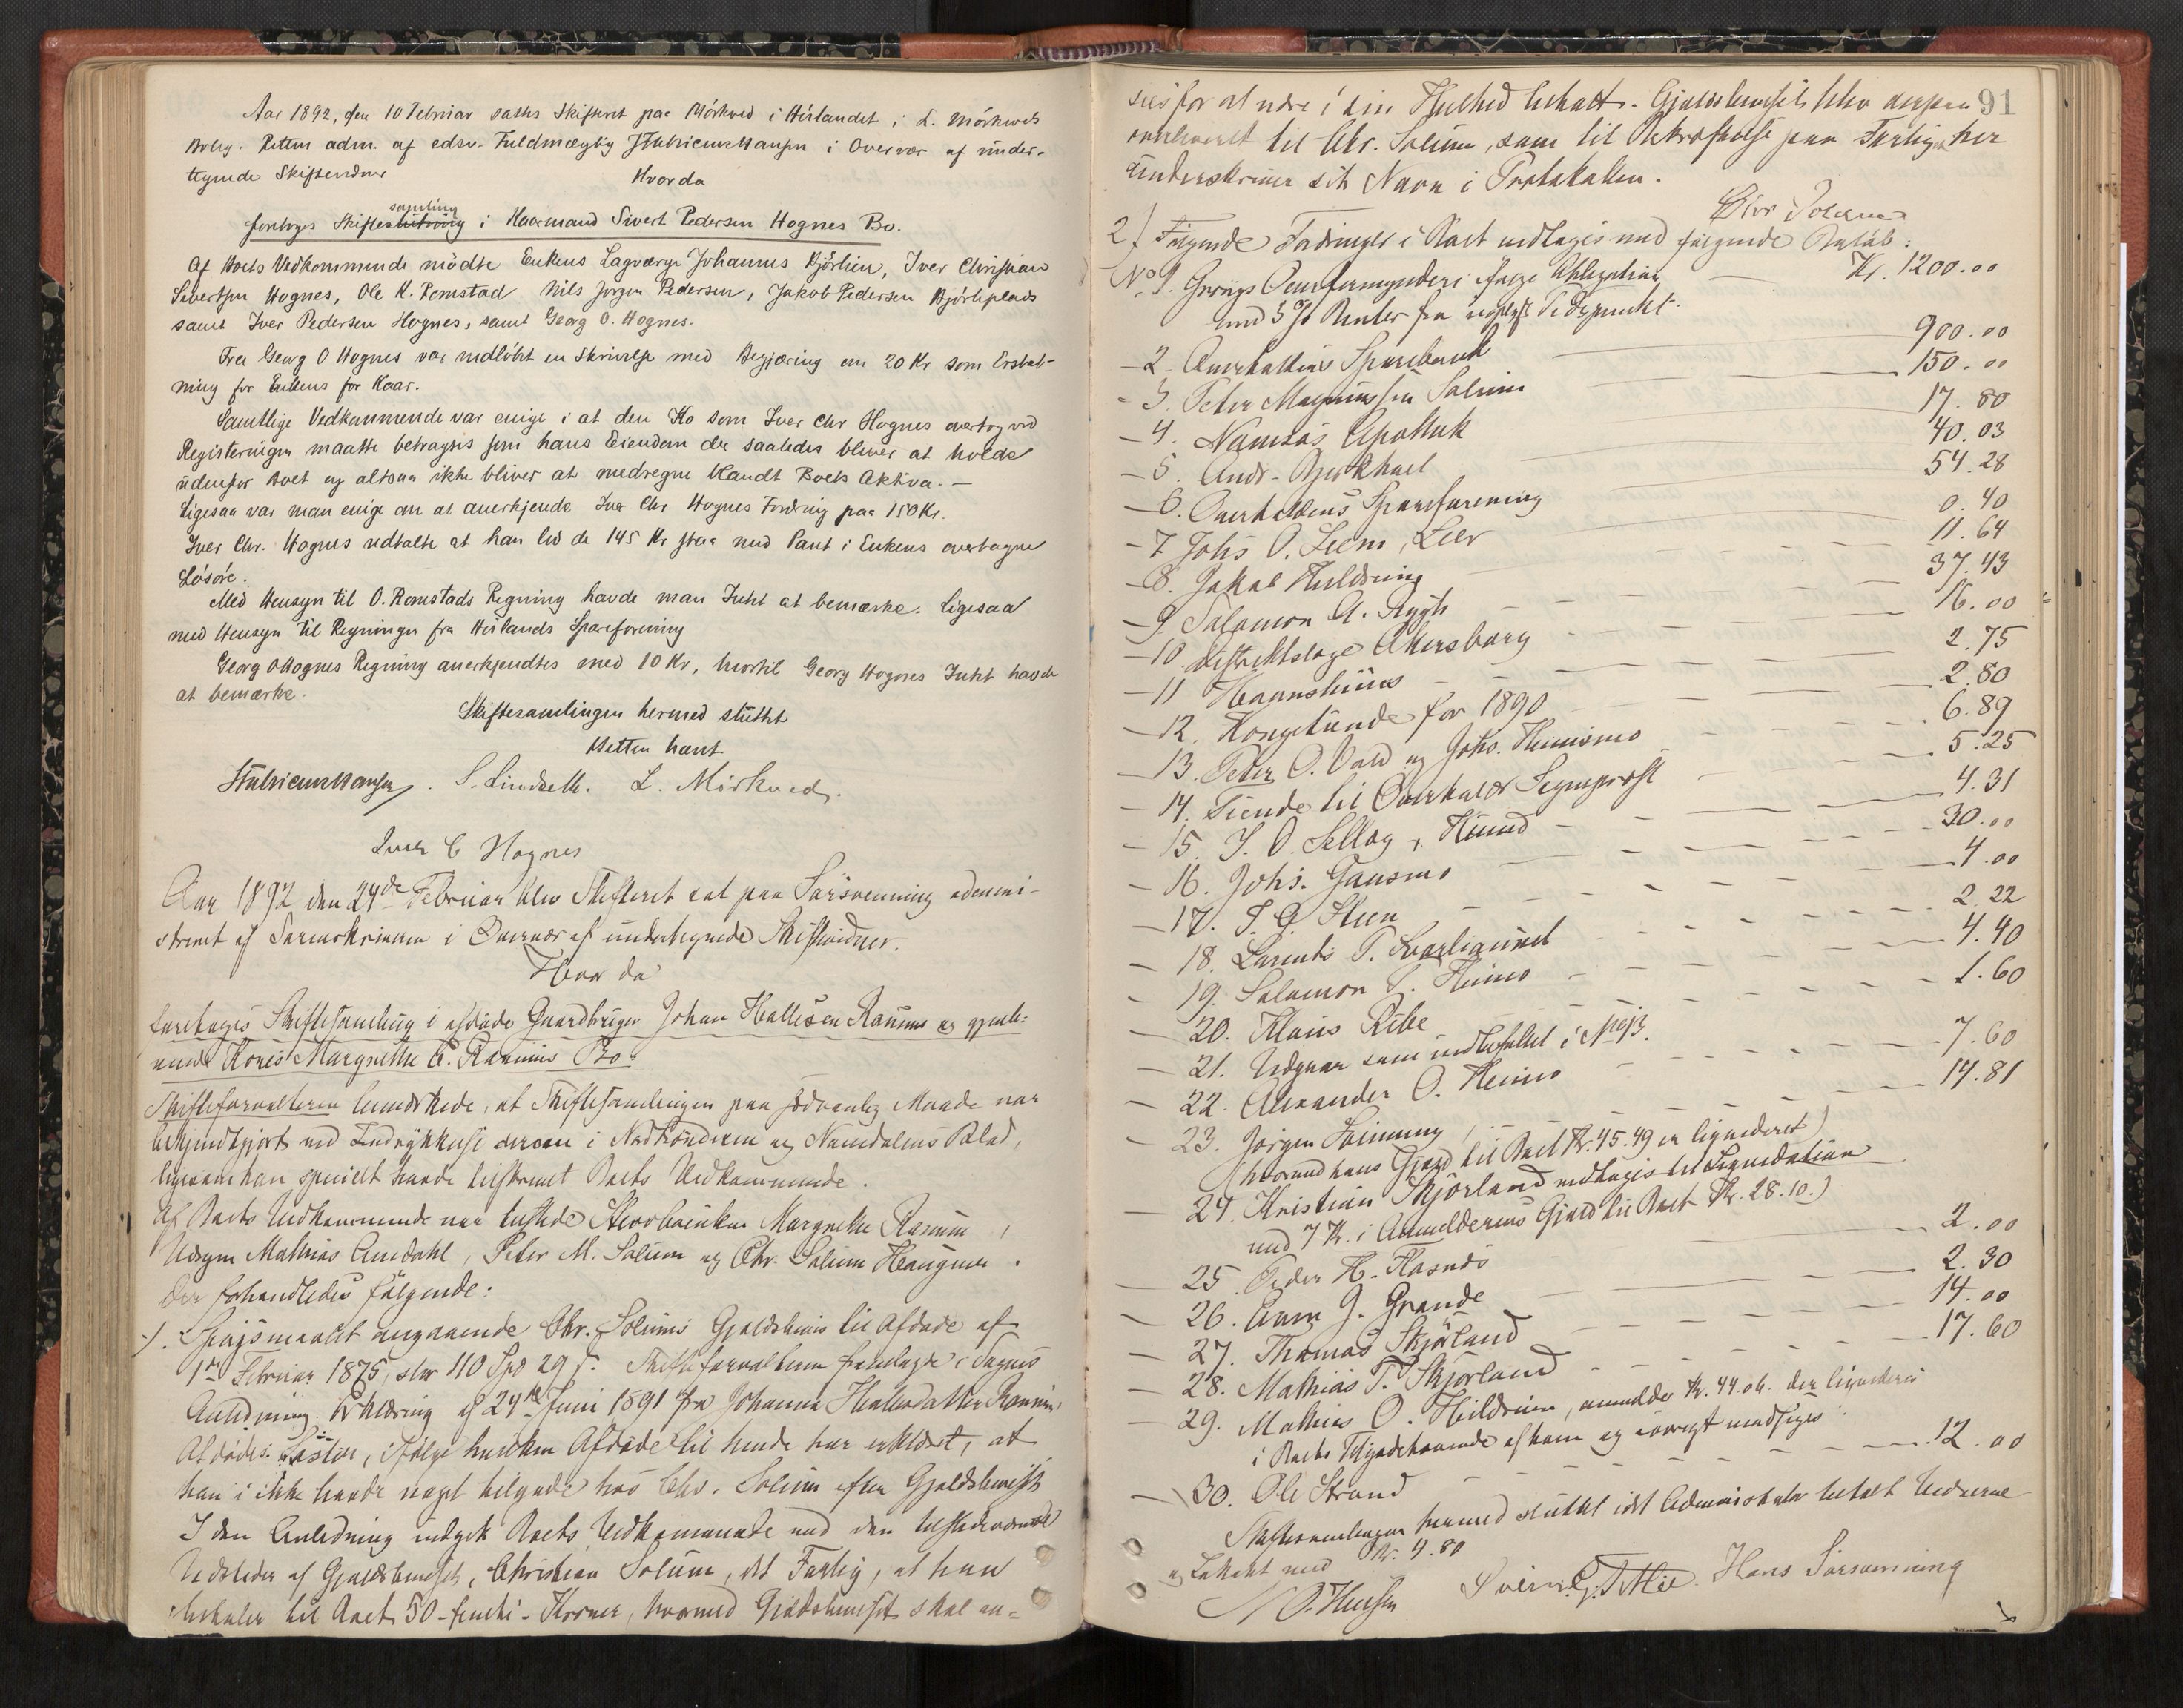 Aar 1892, den 10 Februar sattes Skifteret paa Mörkved i Hörlandet i L. Mörkveds
Bolig. Retten adm. af edsv. Fuldmægtig i Overvær af under-
tegnede Skiftevidner
Hvorda
samling
foretoges Skifteslutning i Kaarmand Sivert Pedersen Hognes Bo.
Af Boets Vedkommende mödte Enkens Lagværge Johannes Björlien, Iver Christian
Sivertsen Hognes, Ole K. Romstad Nils Jörgen Pedersen, Jakob Pedersen Björliplads
samt Iver Pedersen Hognes, samt Georg O. Hognes.
Fra Georg O Hognes var indlöbt en Skrivelse med Begjæring om 20 Kr som Erstat-
ning for Enkens for Kaar.
Samtlige Vedkommende var enige i at den Ko som Iver Chr Hognes overtog ved
Registeringen maatte betragtes som hans Eiendom der saaledes bliver at holde
udenfor Boet og altsaa ikke bliver at medregne blandt Boets Aktiva. —
Ligesaa var man enige om at anerkjende Iver Chr Hognes Fordring paa 150 Kr.
Iver Chr. Hognes udtalte at han lod de 145 Kr staa med Pant i Enkens overtagne
Lösöre.
Med Hensyn til O. Romstads Regning havde man Intet at bemærke. Ligesaa
med Hensyn til Regningen fra Hörlands Spareforening
Georg O Hognes Regning anerkjendtes med 10 Kr, hvortil Georg Hognes Intet havde
at bemærke.
Skiftesamlingen hermed sluttet
Retten hævt
S. Lindseth. L. Mörkved.
Iver C Hognes
Aar 1892 den 24de Februar blev Skifteret sat paa Sörsvenning admini-
streret af Sorenskriveren i Overvær af undertegnede Skiftevidner.
Hvor da
foretoges Skiftesamling i afdöde Gaardbruger Johan Hallesen Ranums og gjenle-
vende Kones Margrethe C. Ranums Bo.
Skifteforvalteren bemærkede, at Skiftesamlingen paa sædvanlig Maade var
bekjendtgjort ved Indrykkelse i Nordtrönderen og Namdalens Blad,
ligesom han specielt havde tilskrevet Boets Vedkommende.
Af Boets Vedkommende var tilstede Stervboenken Margrethe Ranum,
Mathias Amdahl, Peter M. Solum og Chr. Solum Haugum.
Der forhandledes fölgende:
1). Spörgsmaalet angaaende Chr. Solums Gjældsbevis til Afdöde af
1ste Februar 1875, stor 110 Spd 29 s. Skifteforvalteren fremlagde i Sagens
Anledning Erklæring af 24de Juni 1891 fra Johanna Hallesdatter Ranum,
Afdödes Söster, ifölge hvilken Afdöde til hende har erklæret, at
han i ikke havde noget tilgode hos Chr. Solum efter Gjældsbeviset
I den Anledning indgik Boets Vedkommende med den tilstedeværende
Udsteder af Gjældsbeviset, Christian Solum, det Forlig, at han
betaler til Boet 50 - femti - Kroner, hvormed Gjældsbeviset skal an-
91
sees for at være i sin Helhed betalt. Gjældsbeviset blev derpaa
overleveret til Chr. Solum, som til Bekræftelse paa Forliget her
underskriver sit Navn i Protokollen.
2) Fölgende Fordringer i Boet vedtoges med fölgende Belöb:
No 1. Grongs Overformynderi ifölge Obligation — Kr. 1200.00
med 5 % Renter fra Tidspunkt.
— 2. Overhaldens Sparebank — 900.00
— 3. Peter Magnussen Solum — 150.00
— 4. Namsos Apothek 17.80
— 5. Andr. Bjerkhael 40.03
— 6. Overhaldens Spareforening 54.28
— 7 Johs O. Leem, Leer 0.40
— 8. Jakob Huldring 11.64
— 9. Salomon A. Rygh 37.43
— 10 Distriktslæge Akersborg 16.00
— 11 2.75
— 12. Kongetiende for 1890 2.80
— 13. Peter O. Vold og Johs. Hemismo 6.89
— 14. Tiende til Overhald Sogneprest 5.25
— 15. J. O. Sellæg 4.31
— 16. Johs. Gansmo 30.00
— 17. 4.00
— 18. Laurits P. 2.22
— 19. Salomon 4.40
— 20. Klaus Ribe 1.60
— 21. Udgaar som indbefattet i No 13.
— 22. Alexander O. Heimo 7.60
— 23. Jörgen 14.81
(hvorved hans Gjæld til Boet Kr. 45.49 er ligvideret)
— 24. Kristian Skjörland vedtoges til Ligvidation
med 7 Kr. i Anmelderens Gjæld til Boet Kr. 28.10.)
— 25 Peder H. 2.00
— 26. J. Grande 2.30
— 27. Thomas Skjörland 14.00
— 28. Mathias T. Skjörland 17.60
— 29. Mathias O. Hildrum, anmeldte Kr. 44.06. der ligvideres
i Boets Tilgodehavende af ham og iövrigt
— 30. Ole Strand 12.00
Skiftesamlingen hermed sluttet idet Administrator betalt Vidnerne
og Lokalet med Kr. 4.80
Hans Sörsvenning